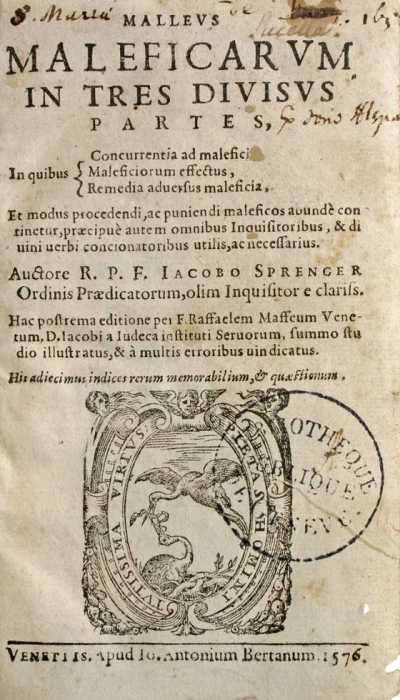 S. Maria de
MALLEVS
MALEFICARVM
IN TRES DIVISVS
PARTES,
ex dono
In quibus { Concurrentia ad malefici
Maleficiorum effectus,
Remedia aduersus maleficia,
Et modus procedendi, ac puniendi maleficos abundè con
tinetur, præcipuè autem omnibus Inquisitoribus, & di
uini uerbi concionatoribus utilis, ac necessarius.
Auctore R. P. F. IACOBO SPRENGER
Ordinis Prædicatorum, olim Inquisitore clariss.
Hac postrema editione per F. Raffaelem Maffeum Vene-
tum, D. Iacobi a Iudeca instituti Seruorum, summo stu
dio illustratus, & à multis erroribus uindicatus.
His adiecimus indices rerum memorabilium, & quæstionum.
PIETAS HOMINI
TVTISSIMA VIRTVS
OTHEQUE
BLIQUE
VENETIIS, Apud Io. Antonium Bertanum. 1576.